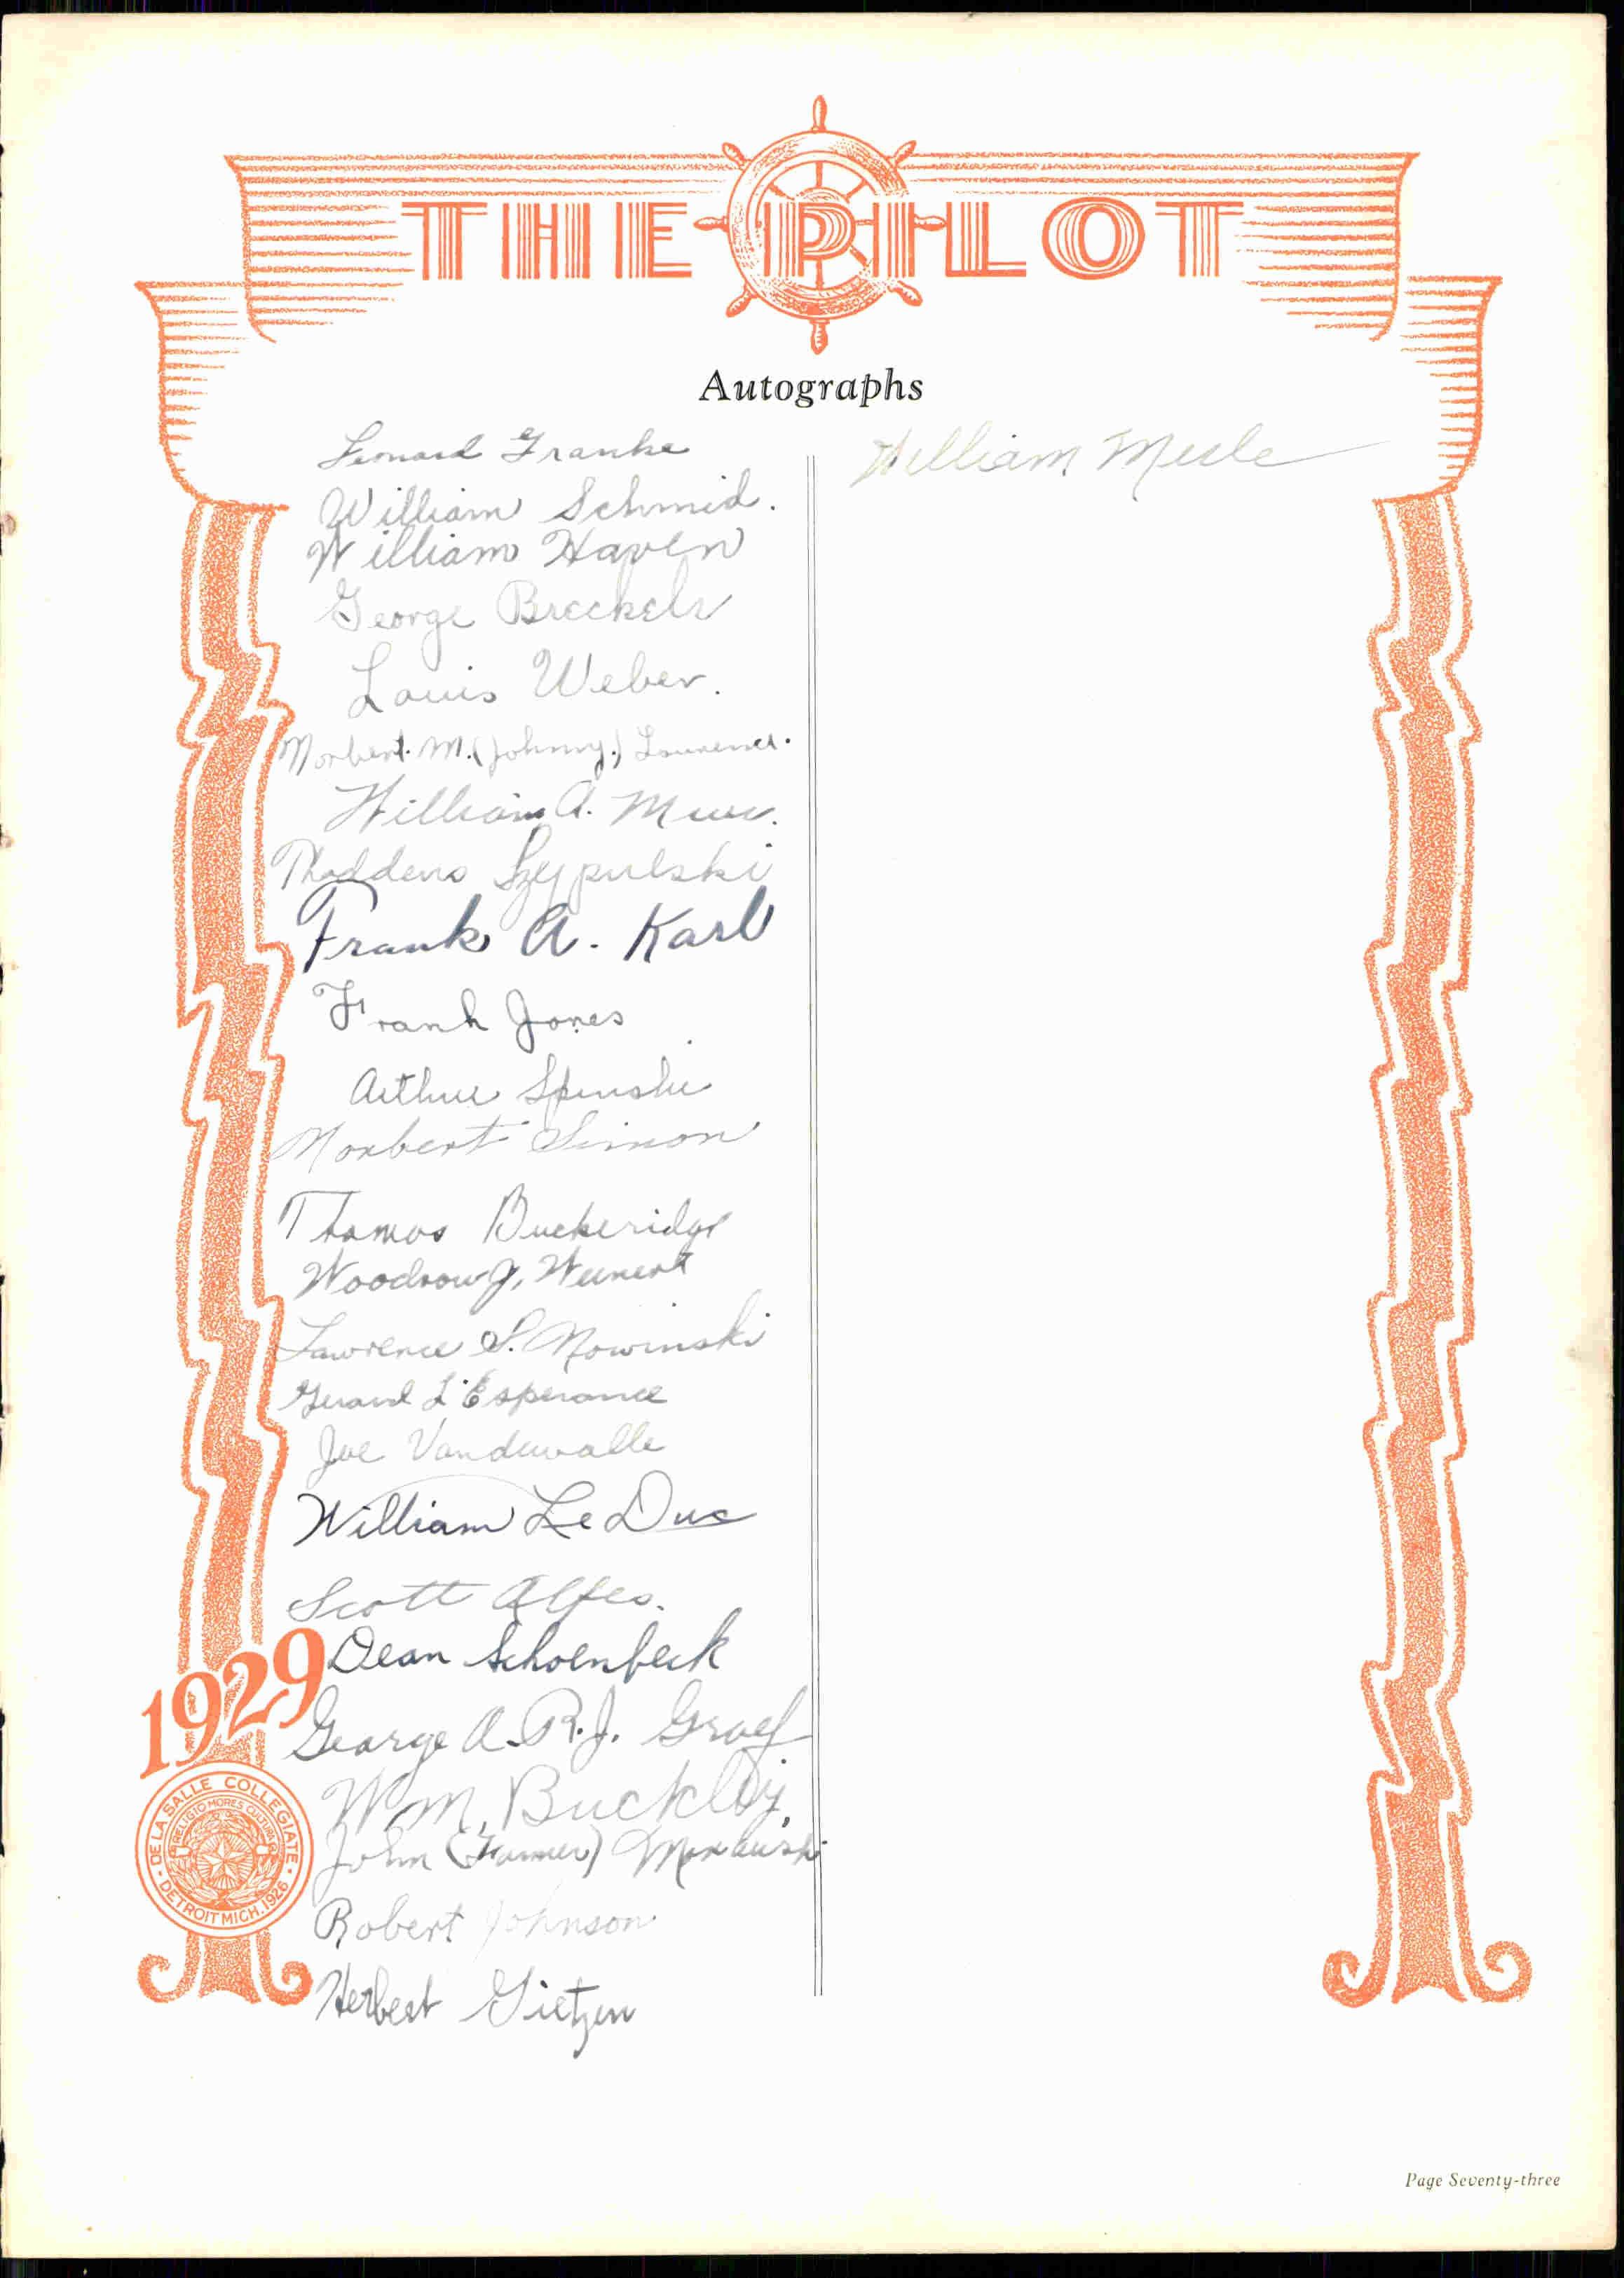 THE PILOT
Autographs
Leonard Franke
William Schmid.
William Haven
George Breckels
Louis Weber.
Norbert M. (Johnny.) Lawrence.
William A.
Thaddeus Szypulski
Frank A. Karl
Frank Jones
Arthur
Norbert Simon
Thomas Buckeridge
Woodrow J. Weinert
Lawrence S. Nowinski
Gerard L'Esperance
Joe Vandewalle
William Le Duc
Scott Alfes.
Dean Schoenbeck
George A. R. J. Graef
Wm. Buckley.
John (Farmer)
Robert Johnson
Herbert Gietzen
William
1929
DE LA SALLE COLLEGIATE
RELIGIO MORES CULTURA
DETROIT MICH. 1926
Page Seventy-three